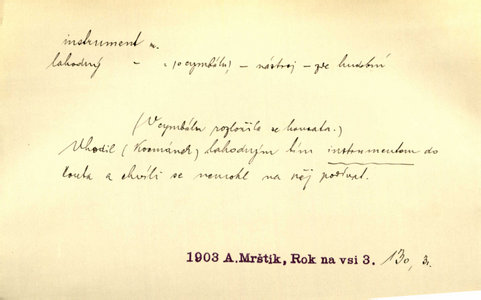 instrument m.
lahodný – (o cymbálu) – nástroj – zvl. hudební
(V cymbálu rozložila se kovsata.)
Vhodil (Kormánek) lahodným tím instrumentem do
kouta a chvíli se nemohl na něj podívat.
1903 A. Mrštík, Rok na vsi 3. 130,